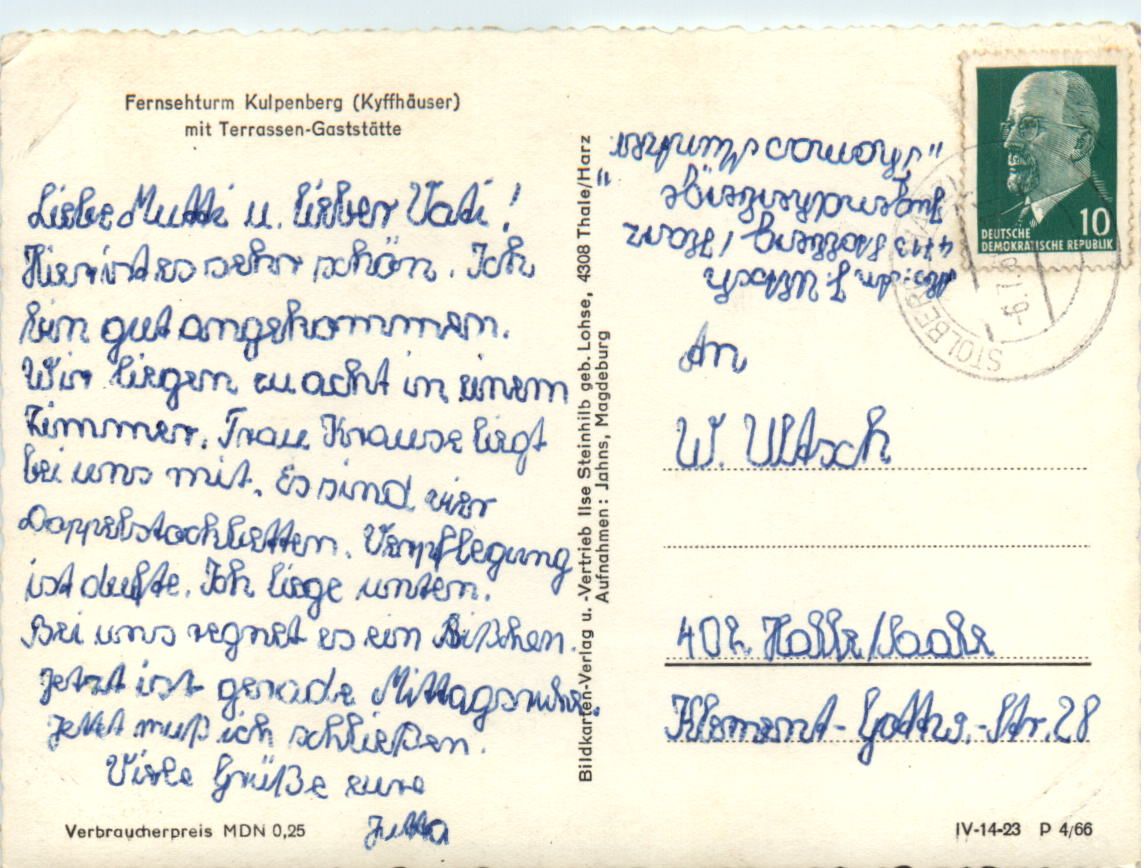 Fernsehturm Kulpenberg (Kyffhäuser)
mit Terrassen-Gaststätte
Liebe Mutti u. lieber Vati!
Hier ist es sehr schön. Ich
bin gut angekommen.
Wir liegen zu acht in einem
Zimmer. Frau Krause liegt
bei uns mit. Es sind vier
Doppelstockbetten. Verpflegung
ist dufte. Ich liege unten.
Bei uns regnet es ein Bißchen.
Jetzt ist gerade Mittagsruhe.
Jettzt muß ich schließen.
Viele Grüße eure
Jutta
Verbraucherpreis MDN 0,25
Bildkarten-Verlag u. -Vertrieb Ilse Steinhilb geb. Lohse, 4308 Thale/Harz
Aufnahmen: Jahns, Magdeburg
Abs.: J. Ultsch
4713 Stolberg / Harz
Jugendherberge
"Thomas Müntzer"
DEUTSCHE
DEMOKRATISCHE REPUBLIK
10
STOLBERG
An
W. Ultsch
402 Halle/Saale
Klement-Gottw.-Str. 28
IV-14-23 P 4/66